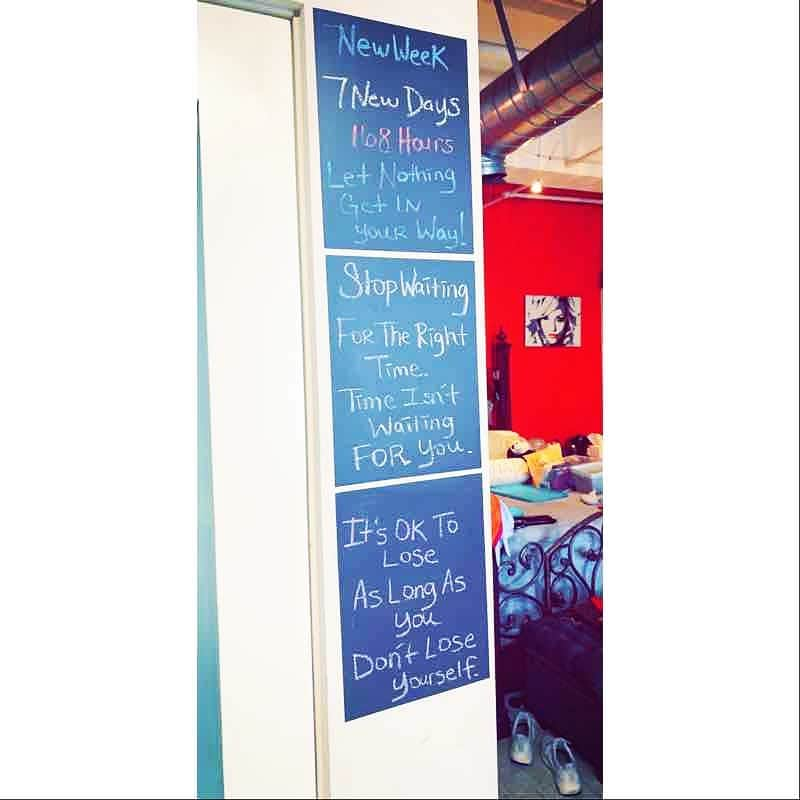 New Week
7 New Days
168 Hours
Let Nothing
Get In
your Way!
Stop Waiting
For The Right
Time.
Time Isn't
Waiting
FOR You.
It's OK To
Lose
As Long As
you
Don't Lose
yourself.